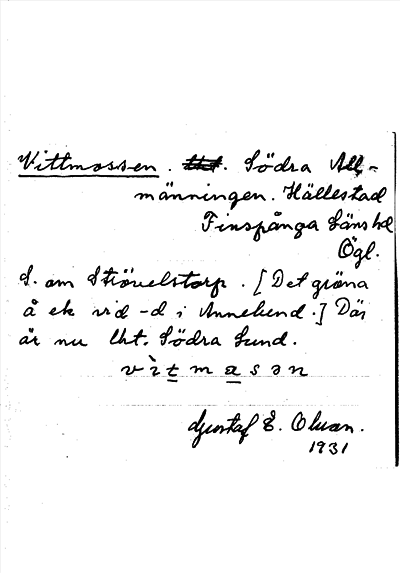 Vittmossen. Södra All-
männingen. Hällestad
Finspånga läns hd
Ögl.
S. om Stövelstorp. [Det gräna
å ek vid -d i Annelund.] Där
är nu lht. Södra Lund.
v ì t m a s ə n
Gustaf E. Olsson.
1931